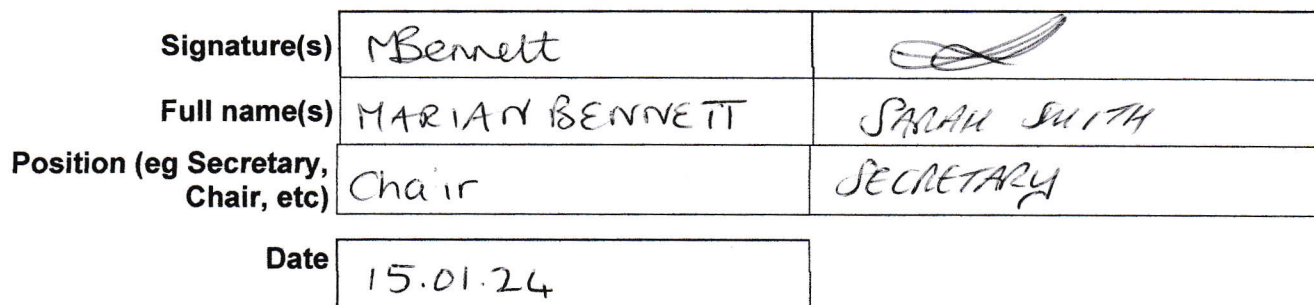 Signature(s) MBennett
Full name(s) MARIAN BENNETT SARAH SMITH
Position (eg Secretary,
Chair, etc) Chair SECRETARY
Date 15.01.24